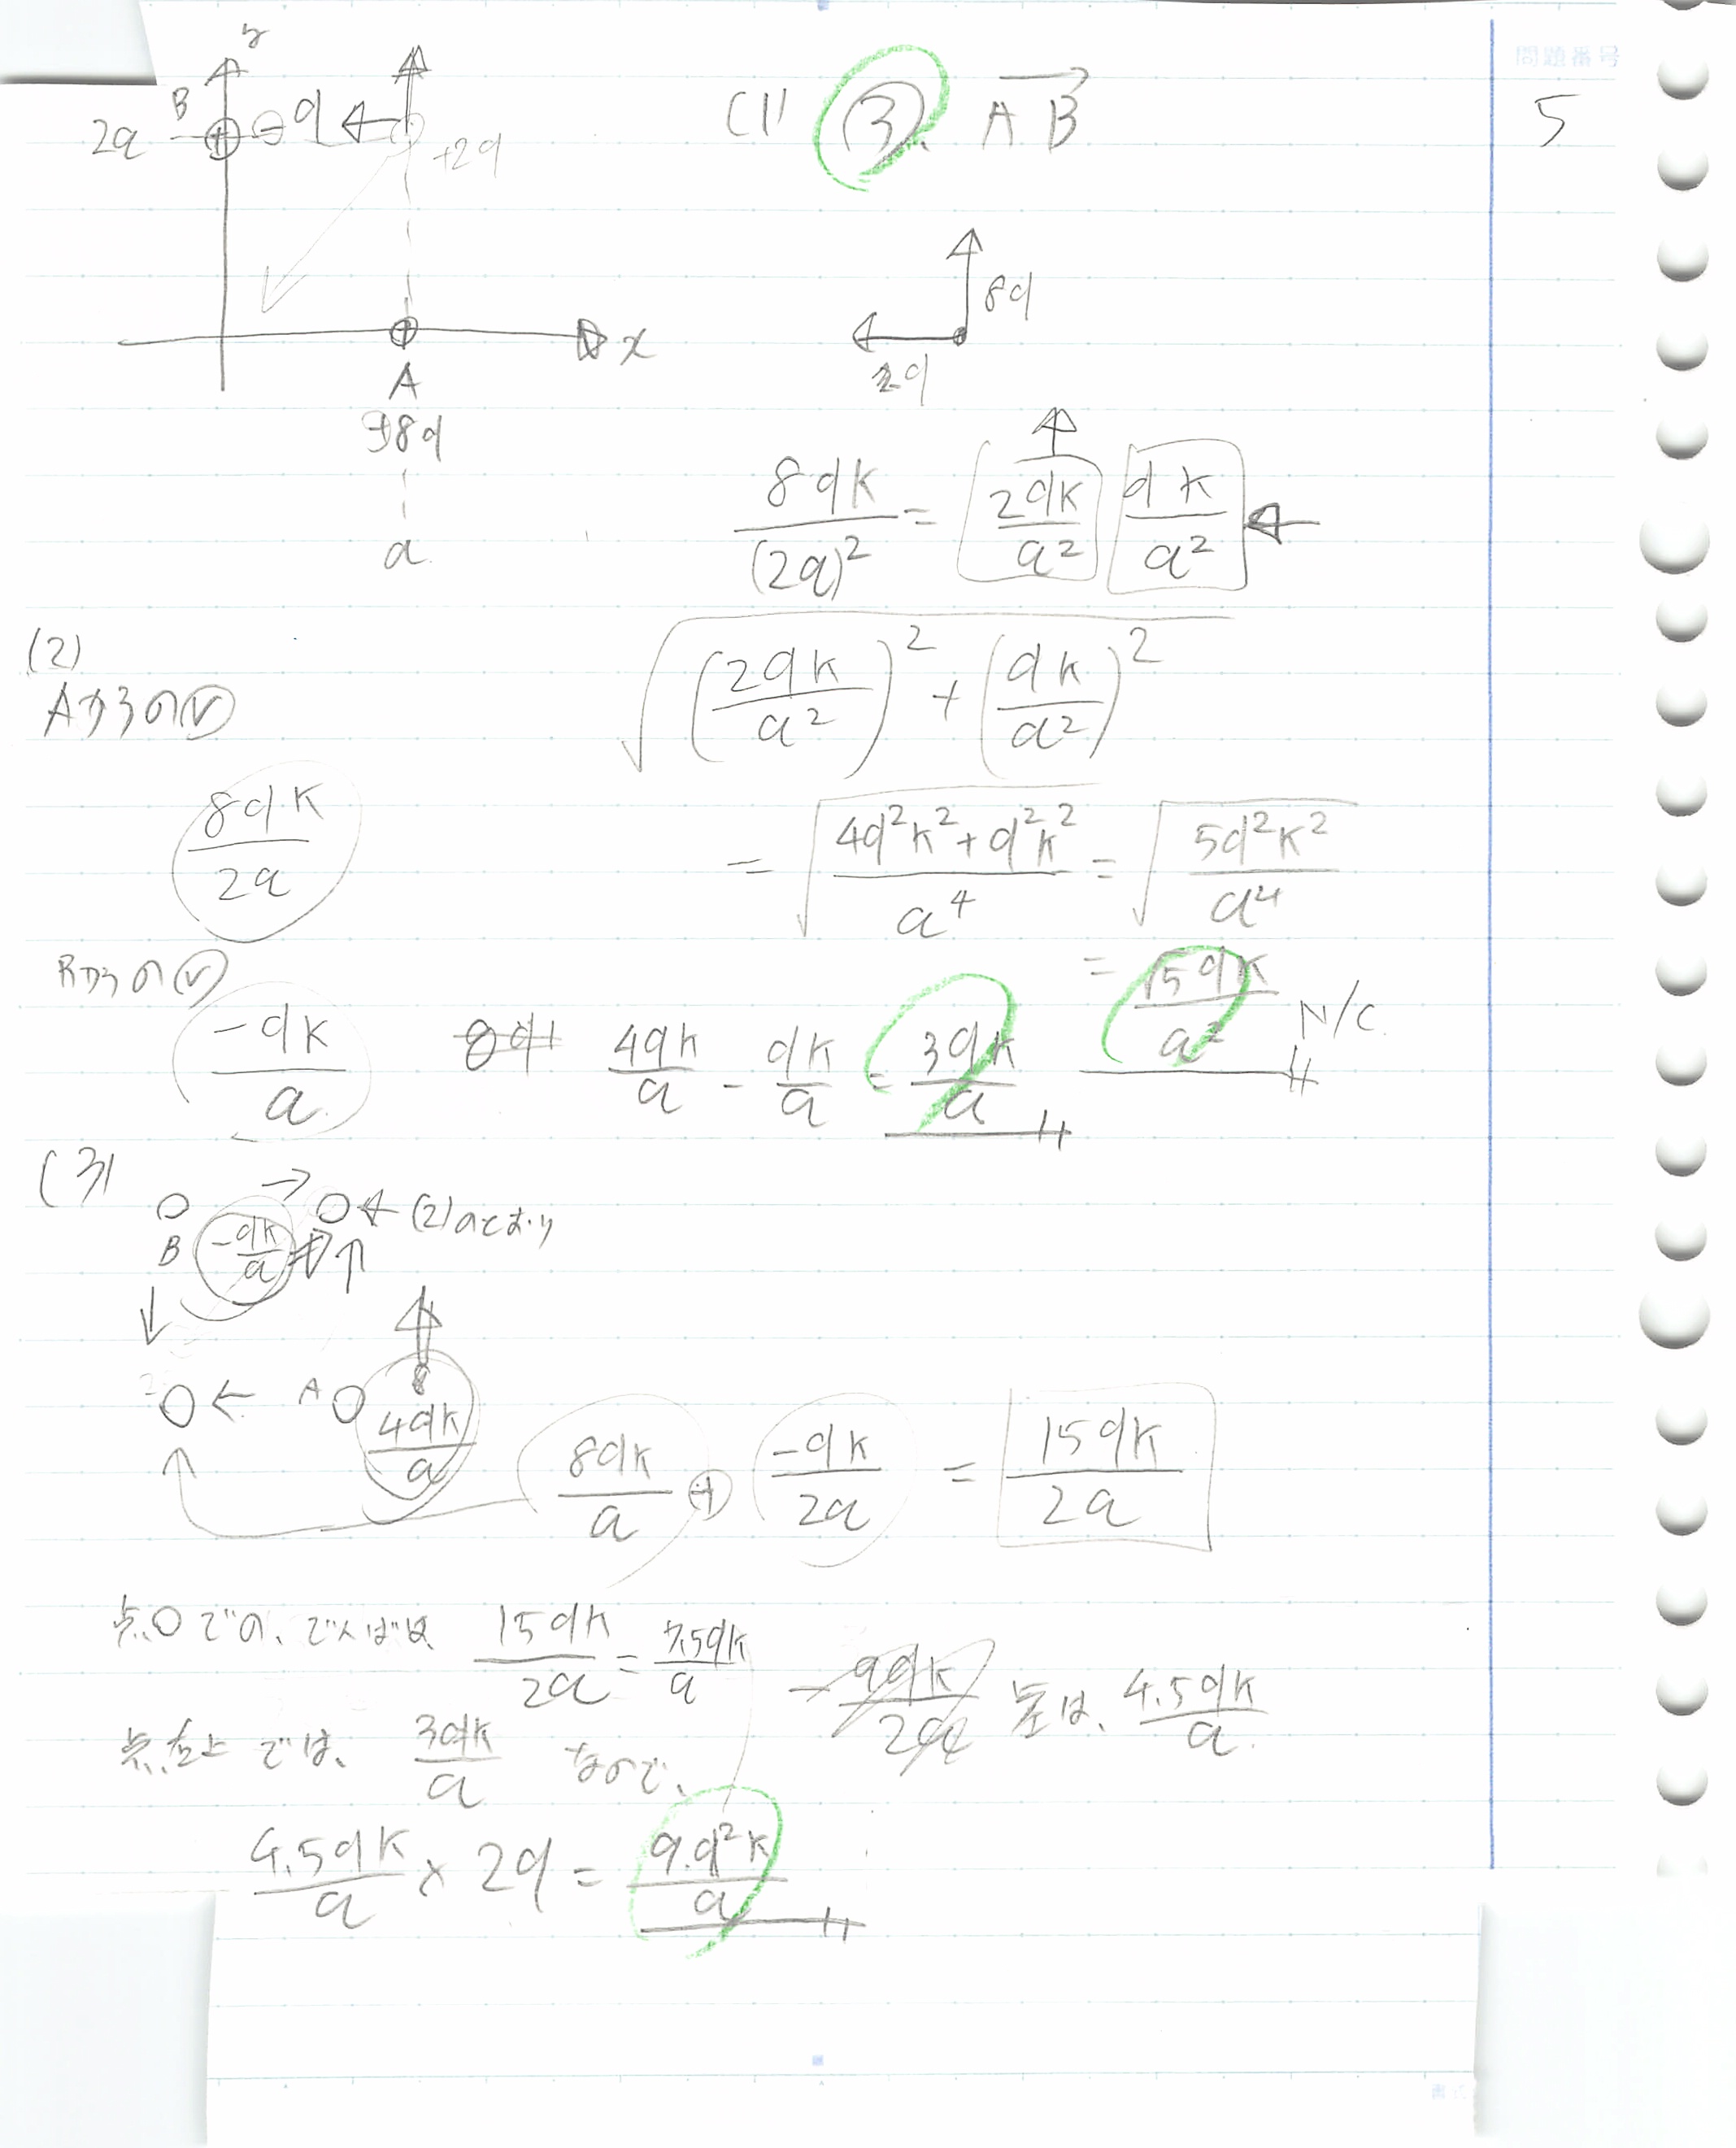 問題番号
5
y
B
2a
⊖q
+2q
x
A
+8q
a
(1) ③. AB
8q
2q
8qk/(2a)² = 2qk/a² qk/a²
√((2qk/a²)² + (qk/a²)²)
= √((4q²k²+q²k²)/a⁴) = √(5q²k²/a⁴)
= √5qk/a² N/C
(2)
AからのⓋ
8qk/2a
BからのⓋ
-qk/a
4qk/a - qk/a = 3qk/a
(3)
B
-qk/a
←(2)のとおり
A
4qk/a
8qk/a ⊕ -qk/2a = 15qk/2a
点Oでの、でんいは 15qk/2a = 7.5qk/a
点右上では、3qk/a なので、
差は、4.5qk/a
4.5qk/a × 2q = 9q²k/a